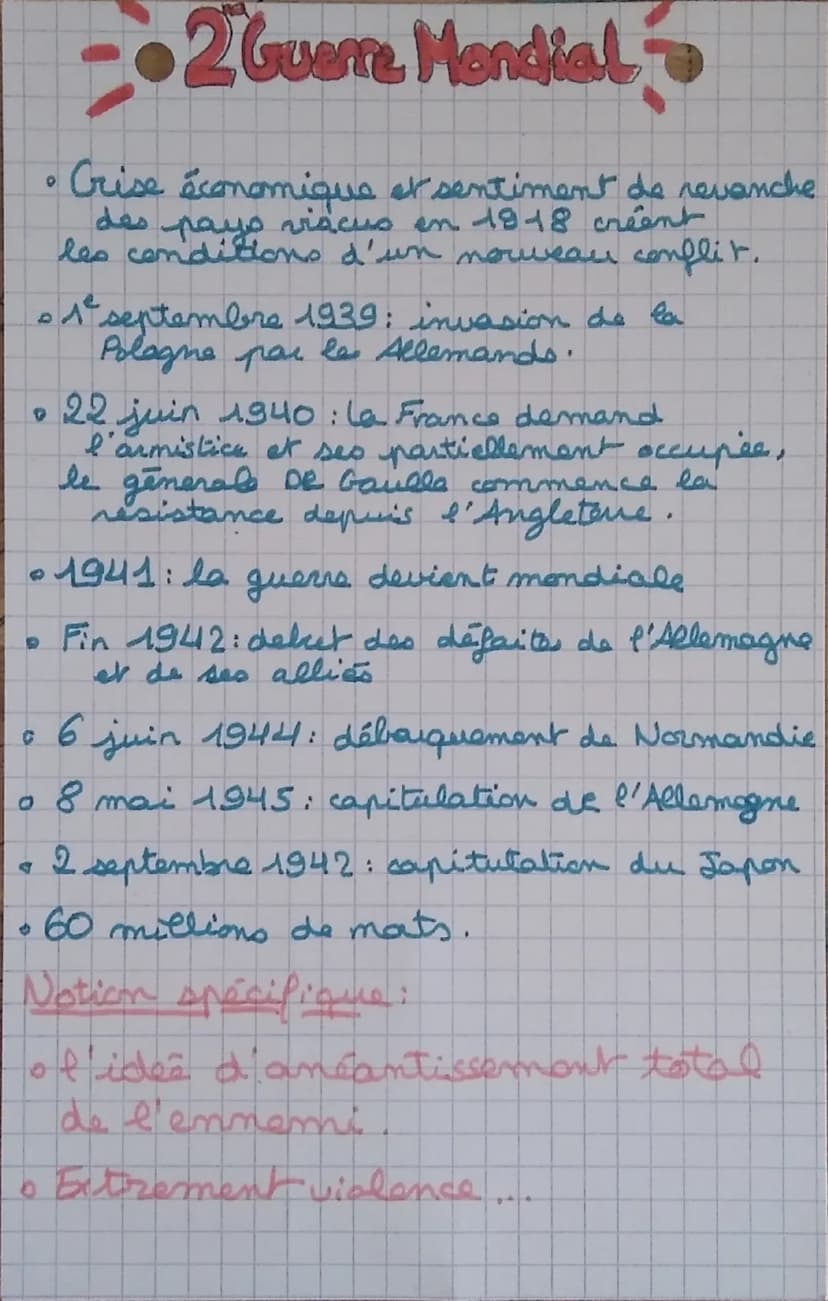 2ème Guerre Mondial
• Crise économique et sentiment de revanche
des pays viacus en 1918 créent
les conditions d'un nouveau conflit.
• 1e septembre 1939 : invasion de la
Pologne par les Allemands.
• 22 juin 1940 : la France demand
l'armistice et ses partiellement occupée,
le générale De Gaulle commence la
résistance depuis l'Angleterre.
• 1941 : la guerre devient mondiale
• Fin 1942 : debut des défaites de l'Allemagne
et de ses alliés
• 6 juin 1944 : débarquement de Normandie
• 8 mai 1945 : capitulation de l'Allemagne
• 2 septembre 1942 : capitulation du Japon
• 60 millions de mots.
Notion spécifique :
• l'ideé d'anéantissement total
de l'ennemi.
• Extrement violence ...